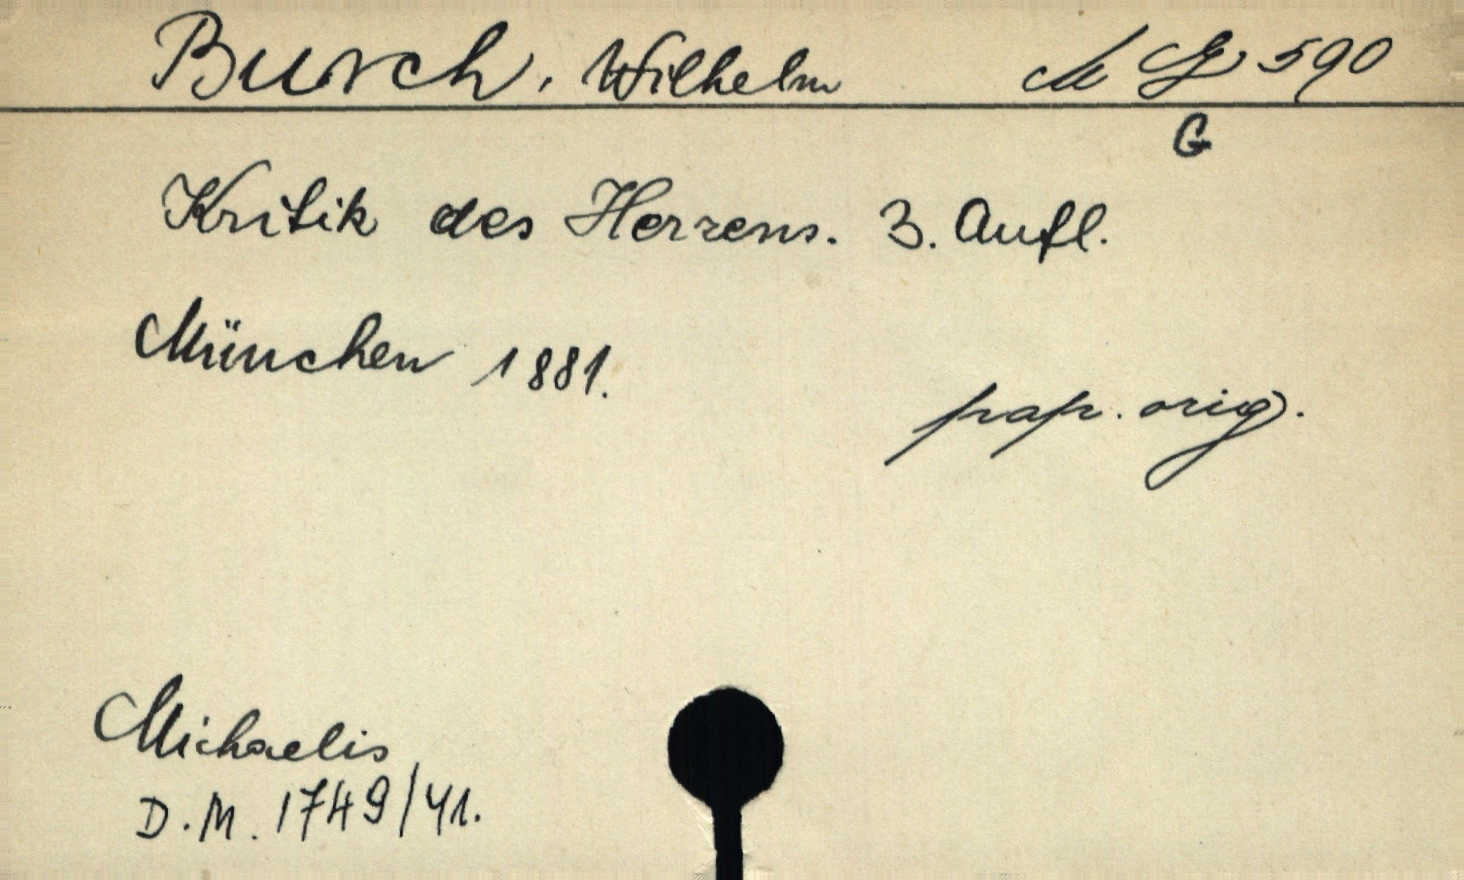 Busch, Wilhelm M G 590
G
Kritik des Herzens. 3. Aufl.
München 1881.
pap. orig.
Michaelis
D.M. 1749/41.